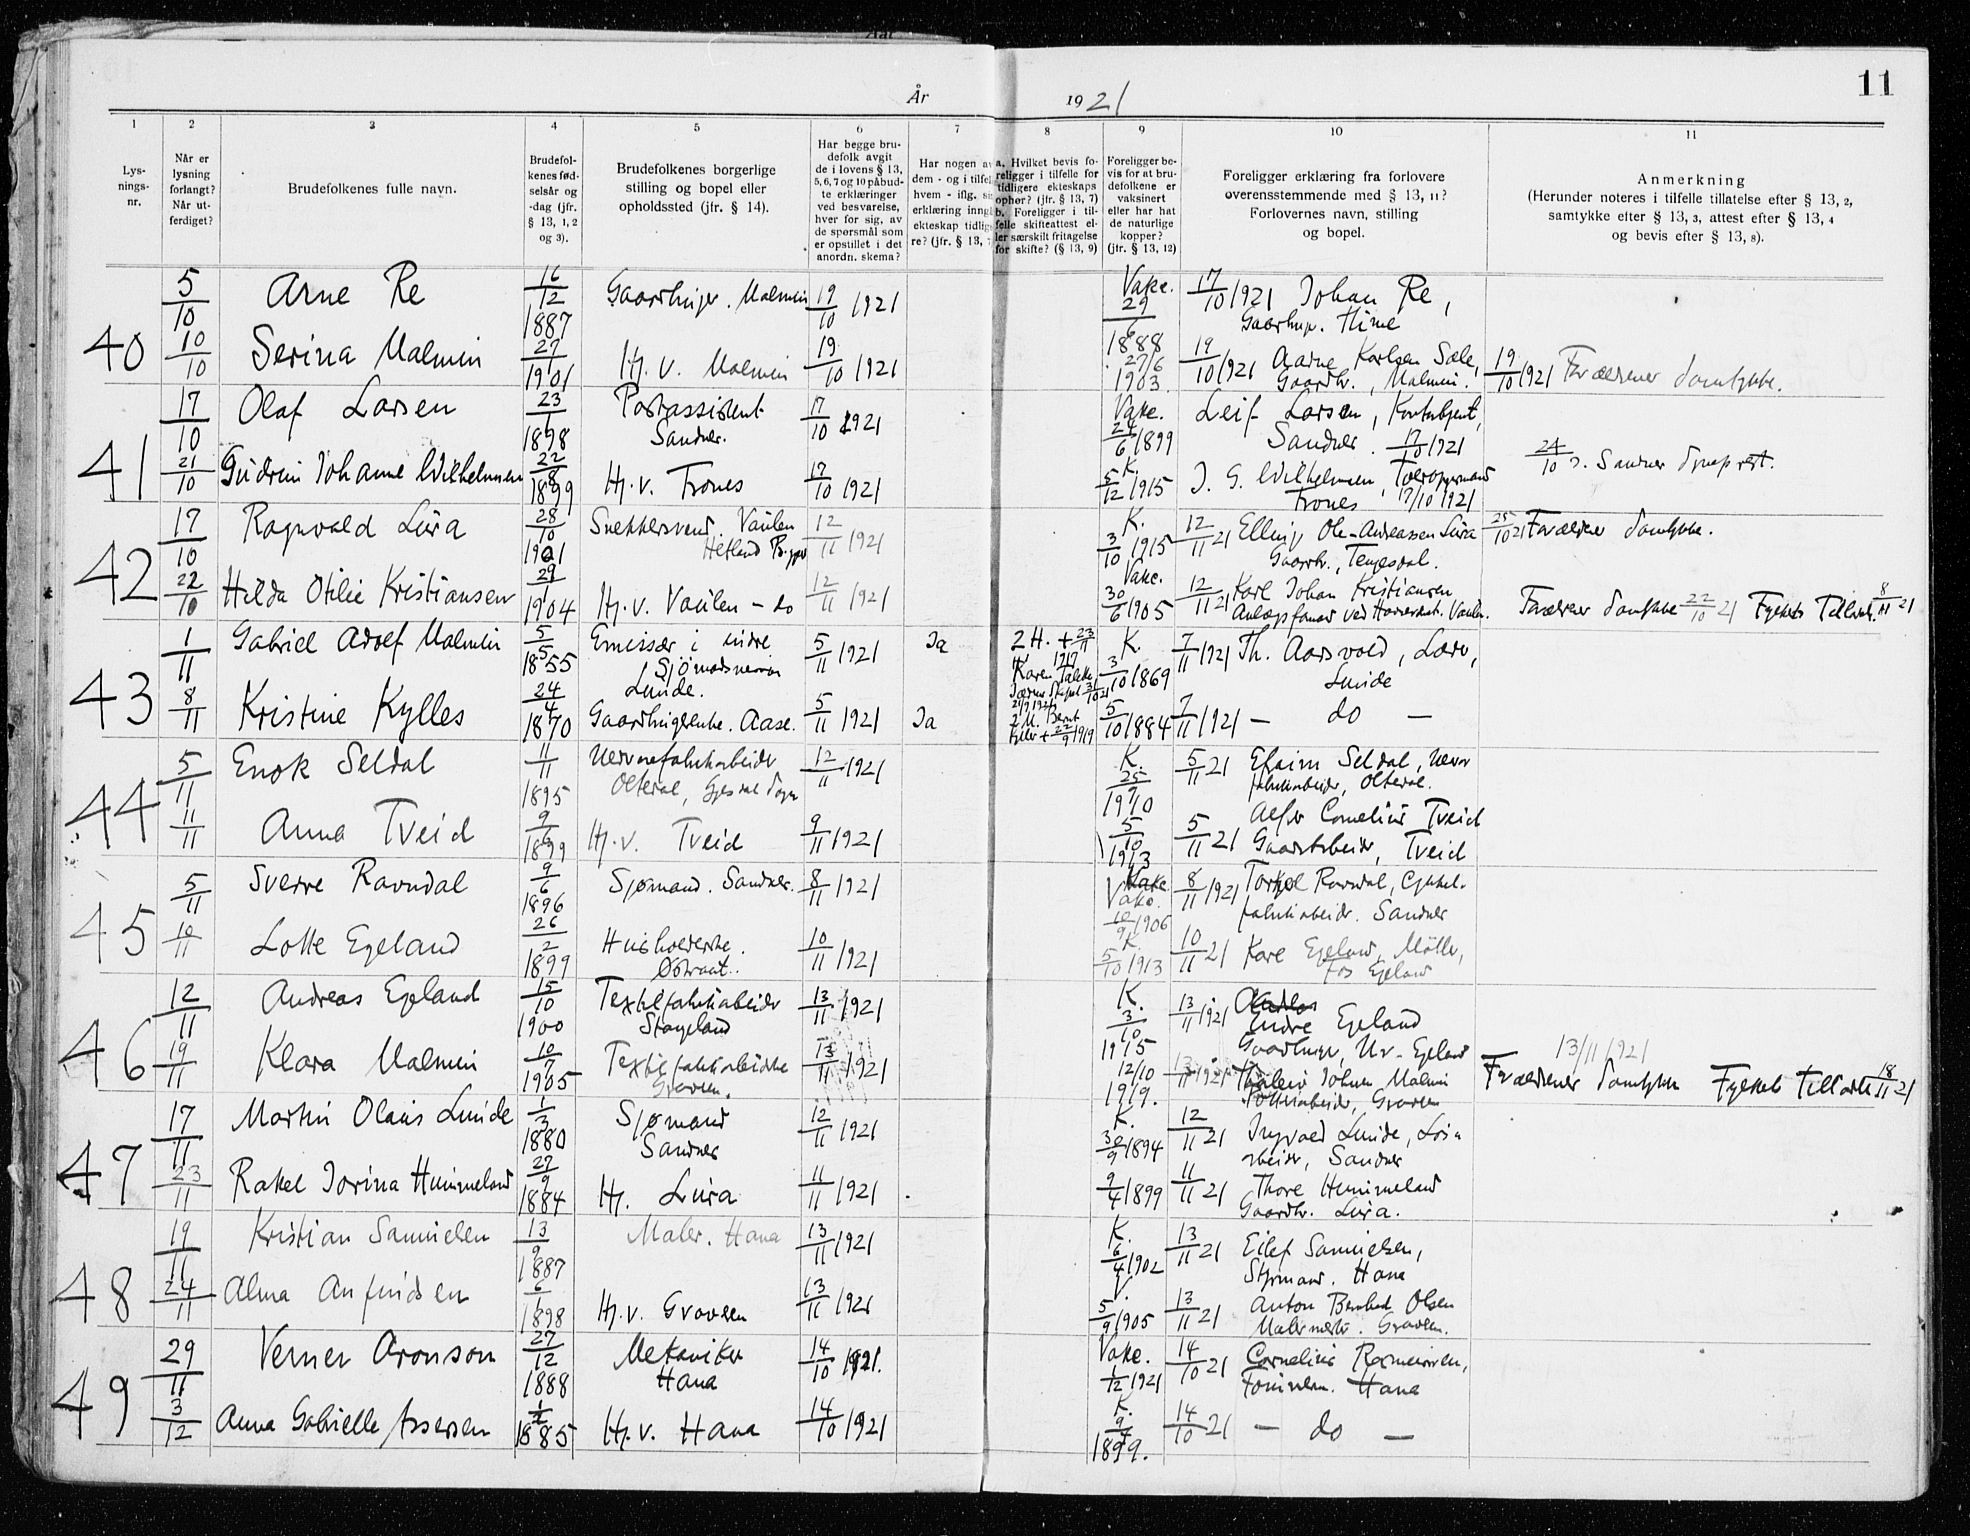 År 1921
11
1
2
3
4
5
6
7
8
9
10
11
Lys-
nings-
nr.
Når er
lysning
forlangt?
Når ut-
ferdiget?
Brudefolkenes fulle navn.
Brudefol-
kenes fød-
selsår og
-dag (jfr.
§ 13, 1, 2
og 3).
Brudefolkenes borgerlige
stilling og bopel eller
opholdssted (jfr. § 14).
Har begge bru-
defolk avgit
de i lovens § 13,
5, 6, 7 og 10 påbud-
te erklæringer
ved besvarelse,
hver for sig, av
de spørsmål som
er opstillet i det
anordn. skema?
Har nogen av
dem - og i tilfel
hvem - iflg. sin
erklæring inngå
ekteskap tidlige
re? (jfr. § 13,
a. Hvilket bevis fo-
religger i tilfelle for
tidligere ekteskaps
ophør? (jfr. § 13, 7)
b. Foreligger i til-
felle skifteattest el-
ler særskilt fritagelse
for skifte? (§ 13, 9)
Foreligger be-
vis for at bru-
defolkene er
vaksinert
eller har hat
de naturlige
kopper?
(jfr. § 13, 12)
Foreligger erklæring fra forlovere
overensstemmende med § 13, 11?
Forlovernes navn, stilling
og bopel.
Anmerkning
(Herunder noteres i tilfelle tillatelse efter § 13, 2,
samtykke efter § 13, 3, attest efter § 13, 4
og bevis efter § 13, 8).
40
5/10 Arne Re 16/12 1887 Malmin 19/10 1921 Vakc. 29/6 1888 17/10 1921 Johan Re,
Hime
10/10 Serina Malmin 27/1 1901 Hj. v. Malmin 19/10 1921 27/6 1903 19/10 1921 Aarne Karlsen Sæle,
Gaardbr., Malmin. 19/10 1921 Forældrenes Samtykke.
41
17/10 Olaf Larsen 23/1 1898 Postassistent
Sandnes. 17/10 1921 Vakc. 24/6 1899 Leif Larsen,
Sandnes. 17/10 1921
21/10 Gudrun Johanne Wilhelmsen 22/8 1899 Hj. v. Trones 17/10 1921 K. 5/12 1915 J. G. Wilhelmsen,
Trones 17/10 1921 24/10
42
17/10 Ragnvald Lura 28/10 1901 Snekkersvend. Vaulen
Hetland 12/11 1921 K. 3/10 1915 12/11 21 Elling Ole Andreassen Lura
Gaardbr., Tengesdal. 25/10 21 Forældres Samtykke.
22/10 Hilda Otilie Kristiansen 29/1 1904 Hj. v. Vaulen - do 12/11 1921 Vakc. 30/6 1905 12/11 21 Karl Johan Kristiansen
Forældres Samtykke 22/10 21 Fylkets Tillad. 8/11 21
43
1/11 Gabriel Adolf Malmin 5/5 1855 Emissær i indre
Sjømandsmission
Lunde. 5/11 1921 Ja K. 3/10 1869 7/11 1921 Th. Aarsvold,
Lunde
8/11 Kristine Kylles 24/4 1870 Gaardbrugerenke. Aase. 5/11 1921 Ja 22/9 1919 5/10 1884 7/11 1921 — do —
44
5/11 Enok Seldal 11/11 1895
Oltedal, 12/11 1921 K. 25/9 1910 5/11 21 Efraim Seldal,
Oltedal.
11/11 Anna Tveid 9/6 1899 Hj. v. Tveid 9/11 1921 5/10 1913 5/11 21 Cornelius Tveid
Gaardarbeider, Tveid
45
5/11 Sverre Ravndal 9/6 1896 Sjømand. Sandnes. 8/11 1921 Vakc. 10/9 1906 8/11 1921 Torkel Ravndal,
fabrikarbeider. Sandnes
10/11 Lotte Egeland 26/2 1899 Husholderske.
Østraat. 10/11 1921 K. 5/10 1913 10/11 21 Egeland, Møller,
Fos Egeland
46
12/11 Andreas Egeland 15/10 1900 Textilfabrikarbeider
Stangeland 13/11 1921 K. 3/10 1915 13/11 1921
Endre Egeland
19/11 Klara Malmin 10/7 1905 Textilfabrikarbeiderske
Graveren. 13/11 1921 12/10 1919. 13/11 1921 Johan Malmin
Graveren 13/11 1921
Forældrenes Samtykke Fylkets Tilladelse 18/11 21
47
17/11 Martin Olaus Lunde 1/3 1880 Sjømand
Sandnes 12/11 1921 K. 30/9 1894 12/11 21 Ingvald Lunde,
arbeider, Sandnes
23/11 Rakel Jorina Hummeland 27/9 1884 Hj. Lura 11/11 1921 9/4 1899 11/11 21 Thore Hummeland
Gaardbr. Lura.
48
19/11 Kristian Samuelsen 13/9 1887 Maler. Hana 13/11 1921 K. 6/4 1902 13/11 21 Eilef Samuelsen,
Styrmand. Hana
24/11 Alma Anfindsen 6/1 1898 Hj. v. Graveren 13/11 1921 V. 5/9 1905 13/11 21 Anton Bernhard Olsen
Malermester. Graveren.
49
29/11 Verner Aronson 27/12 1888 Mekaniker
Hana 14/10 1921. Vakc. 1/12 1921 14/10 21 Cornelius Rasmussen,
Hana
3/12 Anna Gabrielle Assersen 1885 Hj. v. Hana 14/10 1921 K. 1899. 14/10 21 — do —